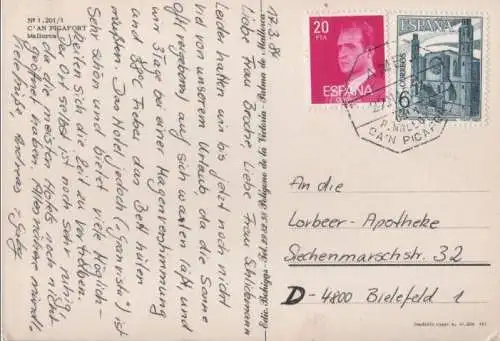 Nº 1.201/1
C'AN PICAFORT
Mallorca
17.3.84
Liebe Frau Brache, liebe Frau Schlickmann
Leider hatten wir bis jetzt noch nicht
viel von unserem Urlaub, da die Sonne
auf sich warten läßt, und
wir 3 Tage bei einer Magenverstimmung
und Fieber das Bett hüten
mußten. Das Hotel jedoch (»Gran vista«) ist
sehr schön und bietet viele Möglich-
keiten sich die Zeit zu vertreiben.
Der Ort selbst ist noch sehr ruhig,
da die meisten Hotels noch nicht
geöffnet haben. Alles nähere mündl.
Viele Grüße, Andreas + Gaby
20
PTA
ESPAÑA
ESPAÑA
CORREOS
6
CA'N PICAFORT
An die
Lorbeer-Apotheke
Siechenmarschstr. 32
D-4800 Bielefeld 1